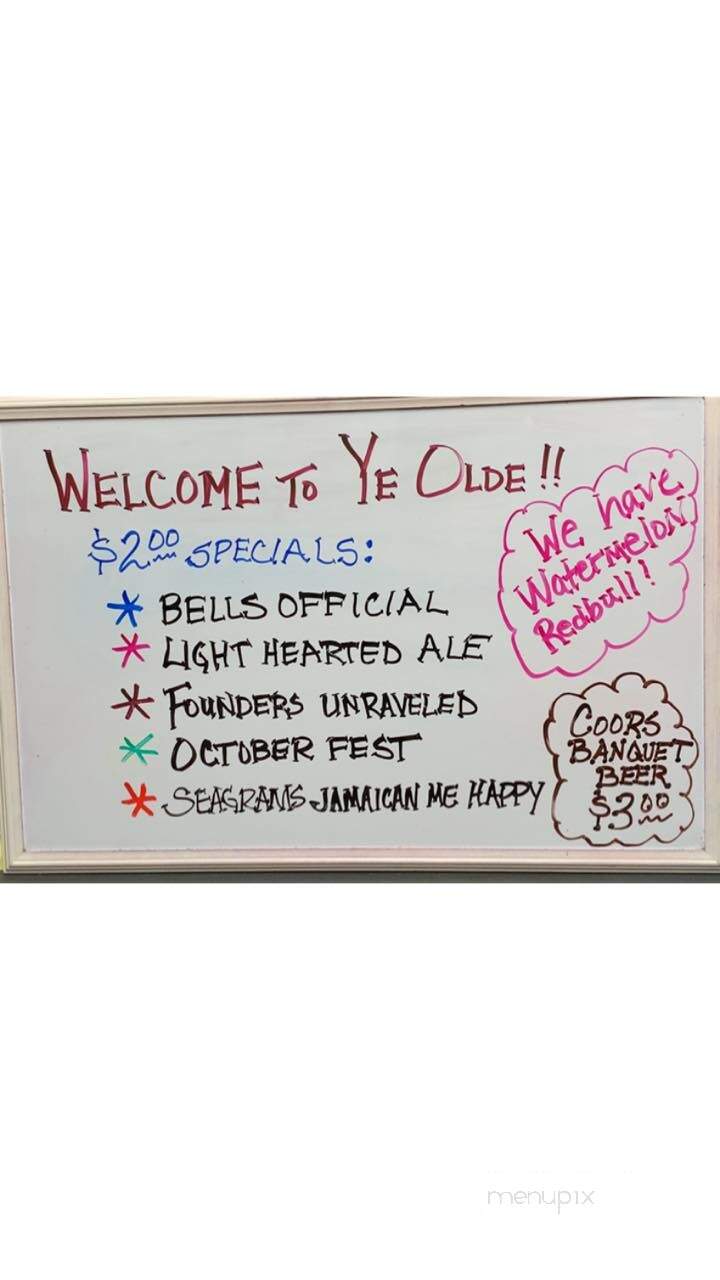 WELCOME TO YE OLDE!!
$2.00 SPECIALS:
* BELLS OFFICIAL
* LIGHT HEARTED ALE
* FOUNDERS UNRAVELED
* OCTOBER FEST
* SEAGRAMS JAMAICAN ME HAPPY
We have
Watermelon
Redbull!
COORS
BANQUET
BEER
$3.00
menupix